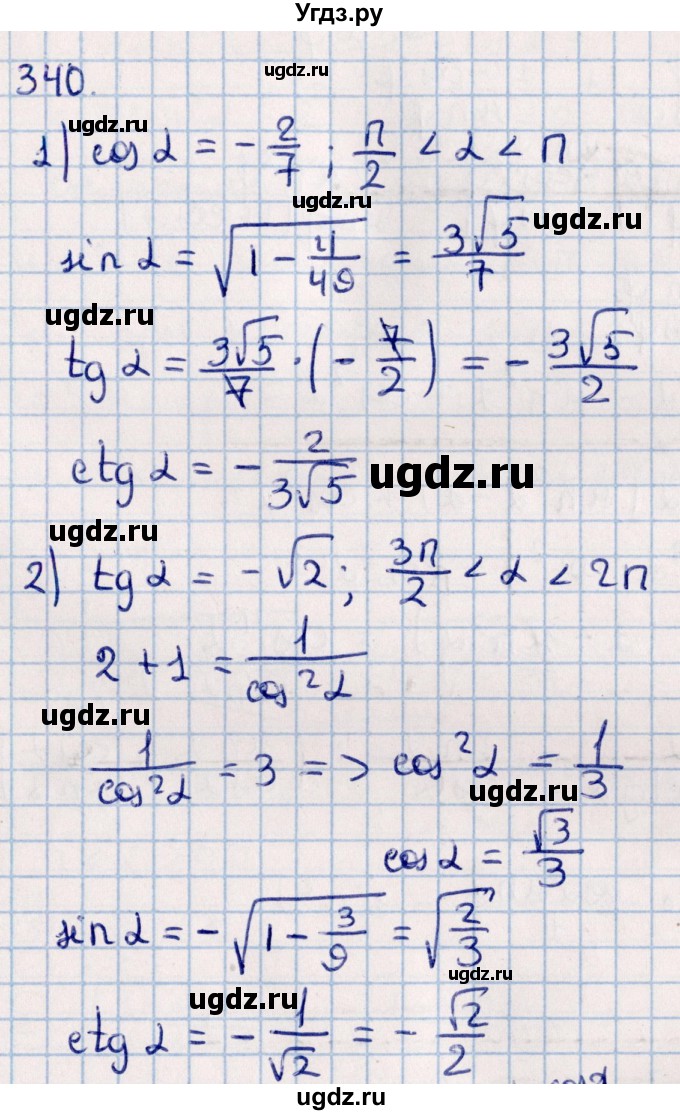 Угдз.ру
340.
ugdz.ru
ugdz.ru
1) cos α = - 2/7 ; π/2 < α < π
ugdz.ru
sin α = √(1 - 4/49) = 3√5/7
ugdz.ru
tg α = 3√5/7 · (- 7/2) = - 3√5/2
ctg α = - 2/(3√5)
ugdz.ru
ugdz.ru
2) tg α = -√2; 3π/2 < α < 2π
2 + 1 = 1/cos²α
ugdz.ru
1/cos²α = 3 => cos²α = 1/3
ugdz.ru
cos α = √3/3
sin α = -√(1 - 3/9) = √(2/3)
ugdz.ru
ugdz.ru
ctg α = - 1/√2 = - √2/2